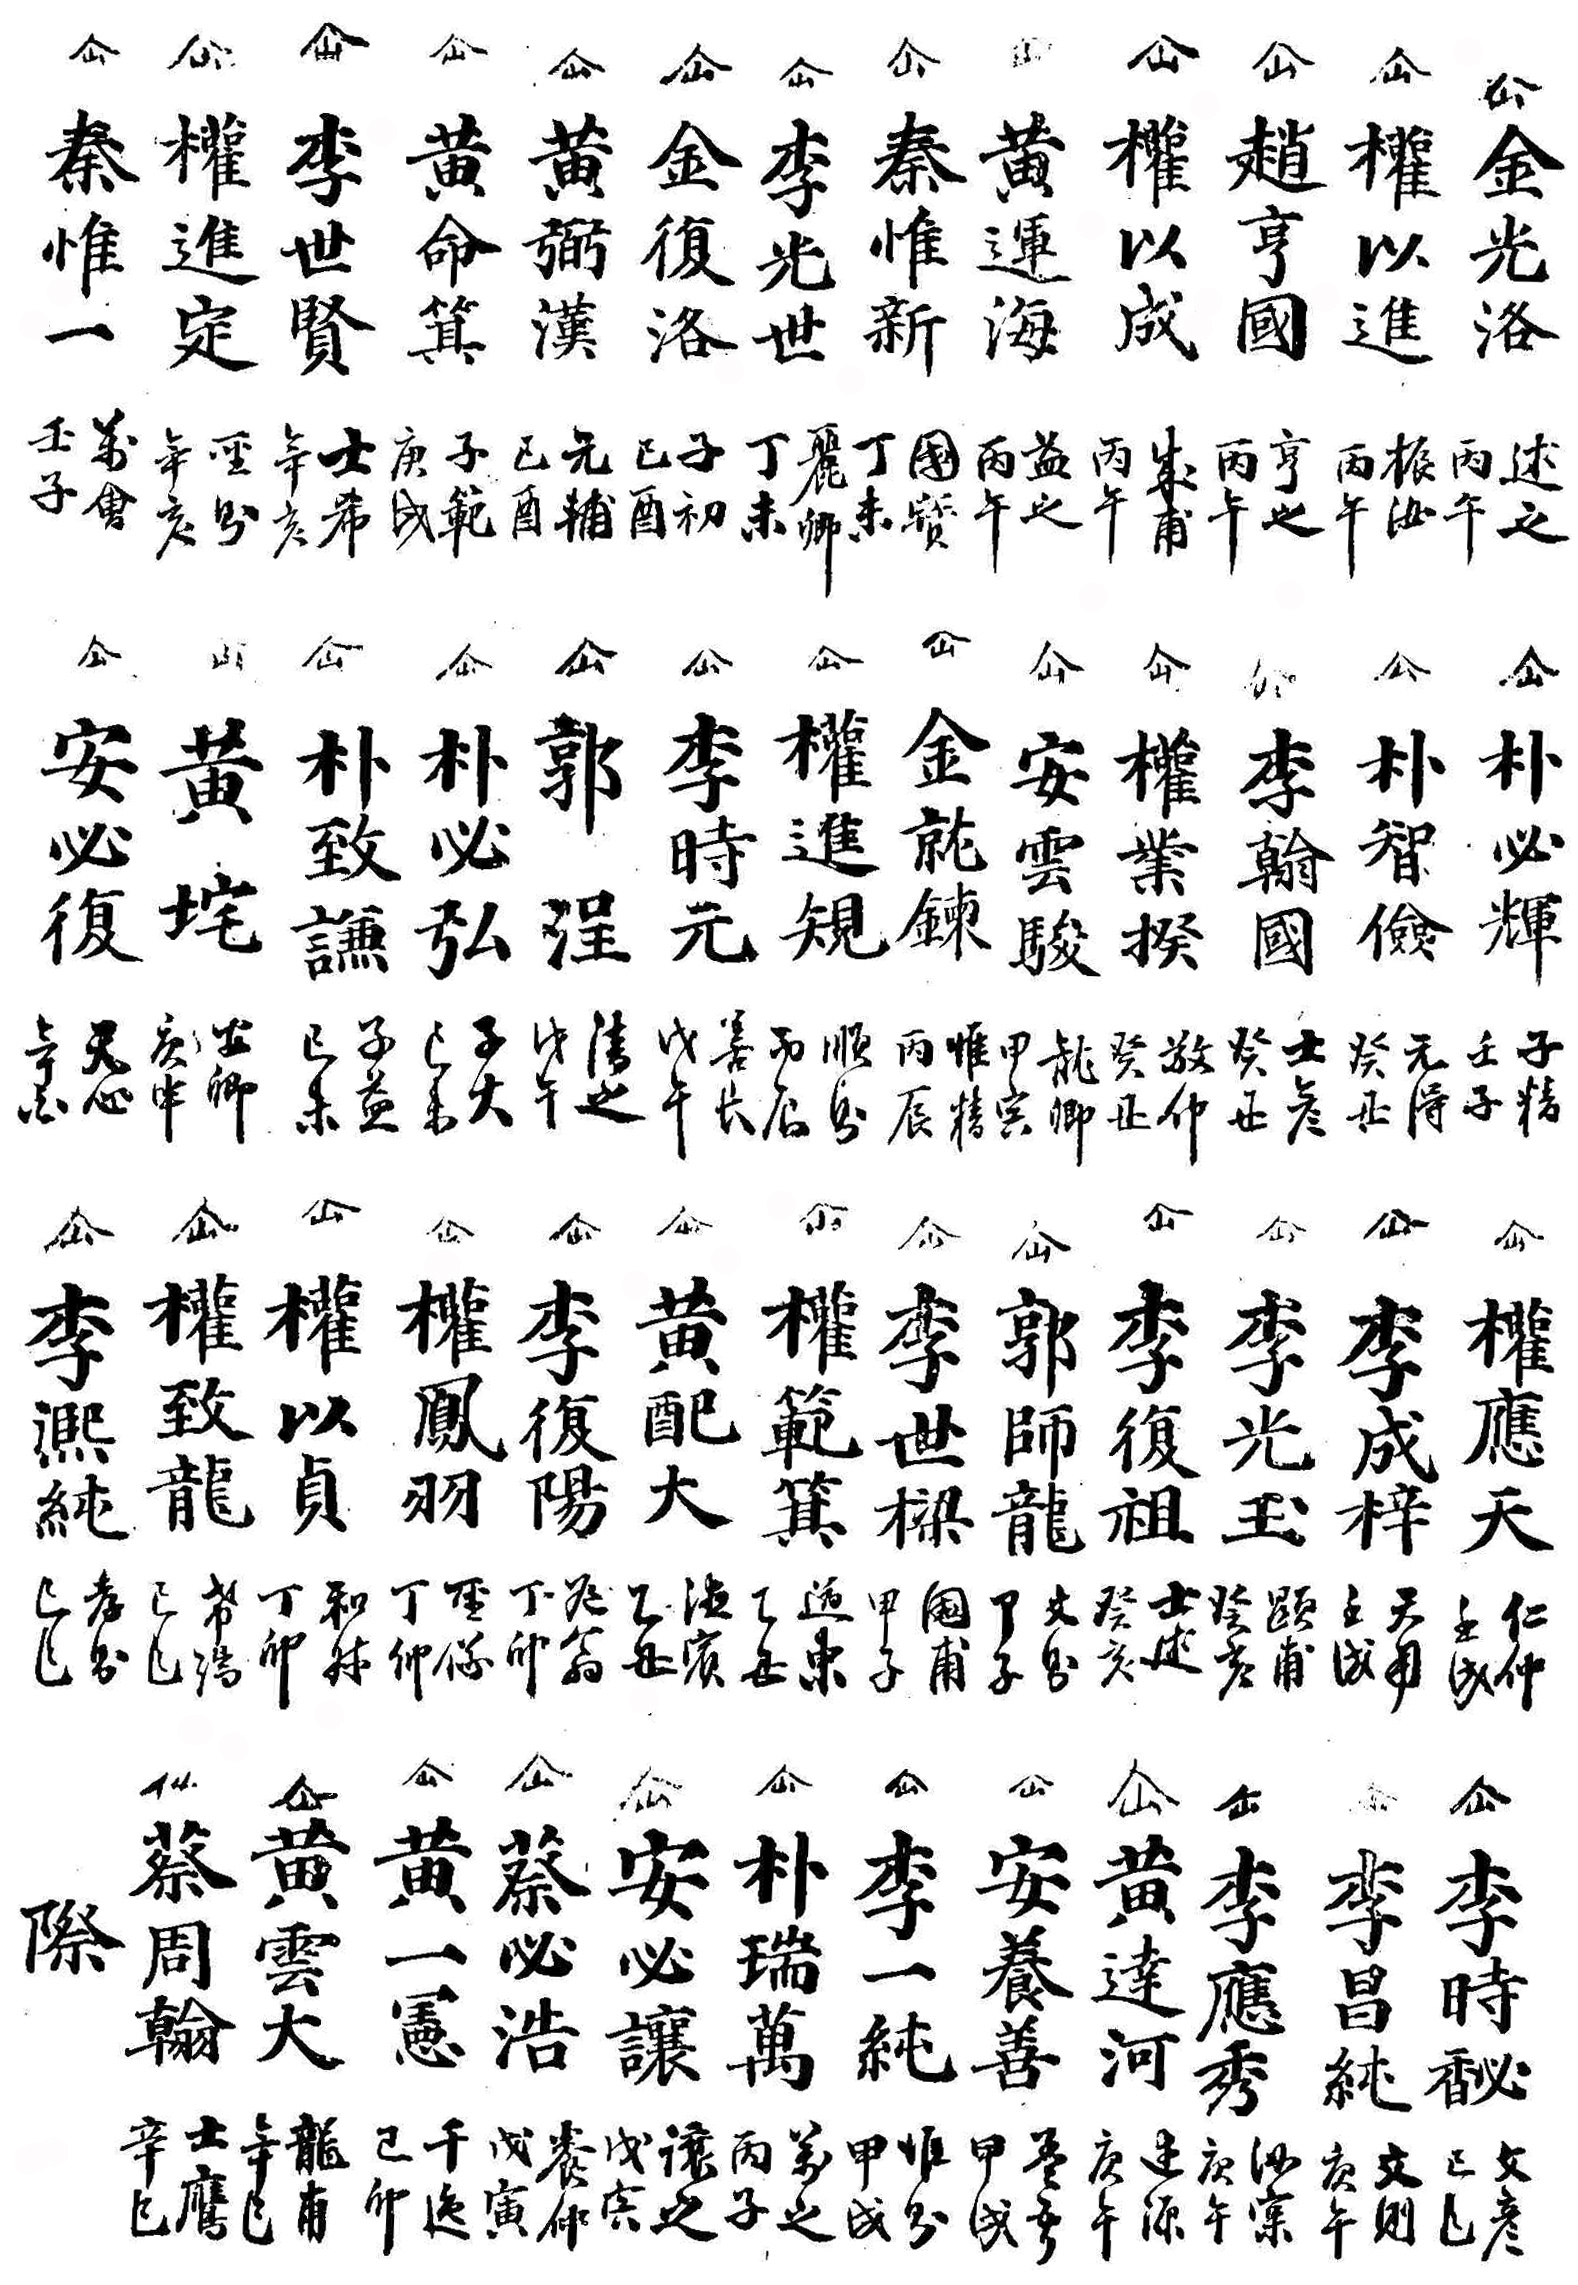 金光洛 述之 丙午
權以進 振汝 丙午
趙亨國 亨之 丙午
權以成 丙午
黃運海 益之 丙午
秦惟新 國賢 丁未
李光世 麗卿 丁未
金復洛 子初 己酉
黃弼漢 元輔 己酉
黃命箕 子範 庚戌
李世賢 士希 辛亥
權進定 聖則 辛亥
秦惟一 萬會 壬子
朴必輝 子精 壬子
朴智儉 元得 癸丑
李翰國 士彦 癸丑
權業揆 敬仲 癸丑
安雲駿 龍卿 甲寅
金就鍊 惟精 丙辰
權進規 順則 丙辰
李時元 善長 戊午
郭浧 清之 戊午
朴必弘 子大 己未
朴致謙 子益 己未
黃垞 宅卿 庚申
安必復 天心 辛酉
權應天 仁仲 壬戌
李成梓 天用 壬戌
李光玉 顯甫 癸亥
李復祖 士述 癸亥
郭師龍 文則 甲子
李世樑 國甫 甲子
權範箕 道東 乙丑
黃配大 浩賓 乙丑
李復陽 丁卯
權鳳羽 聖儀 丁卯
權以貞 和叔 丁卯
權致龍 希瑞 己巳
李凞純 孝則 己巳
李時馝 文彦 己巳
李昌純 文則 庚午
李應秀 庚午
黃達河 達源 庚午
安養善 甲戌
李一純 惟則 甲戌
朴瑞萬 萬之 丙子
安必讓 讓之 戊寅
蔡必浩 養仲 戊寅
黃一憲 千逸 己卯
黃雲大 龍甫 辛巳
蔡周翰 士鷹 辛巳
際